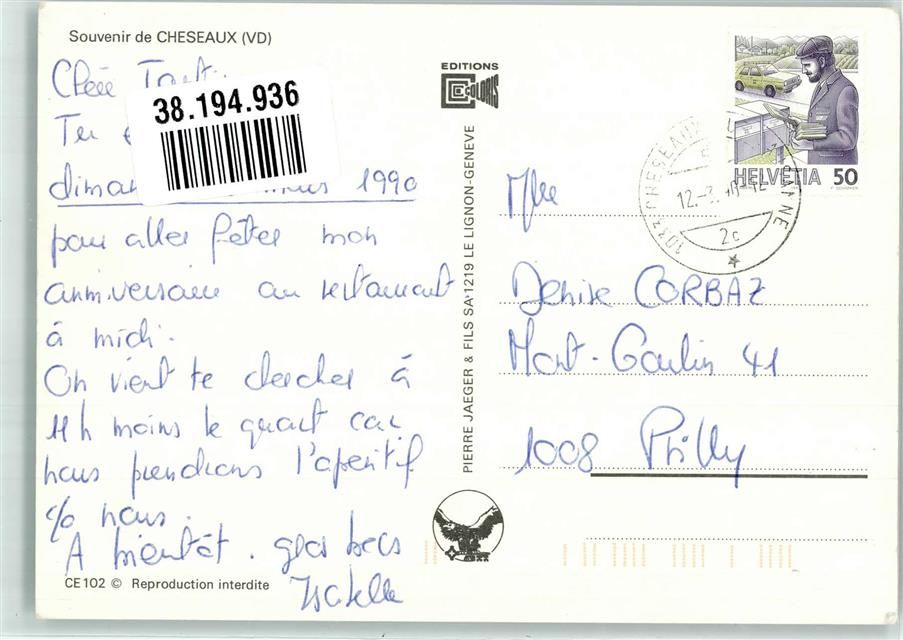 Souvenir de CHESEAUX (VD)
Tu
38.194.936
1990
pour aller fêter mon
anniversaire au restaurant
à midi.
On vient te chercher à
11 h moins le quart car
nous prendrons l'apéritif
c/o nous.
A bientôt. gros becs
Isabelle
CE 102 © Reproduction interdite
EDITIONS
COLORIS
PIERRE JAEGER & FILS SA·1219 LE LIGNON-GENEVE
HELVETIA 50
1033 CHESEAUX
2c
Mlle
Denise CORBAZ
Mont-Goulin 41
1008 Prilly